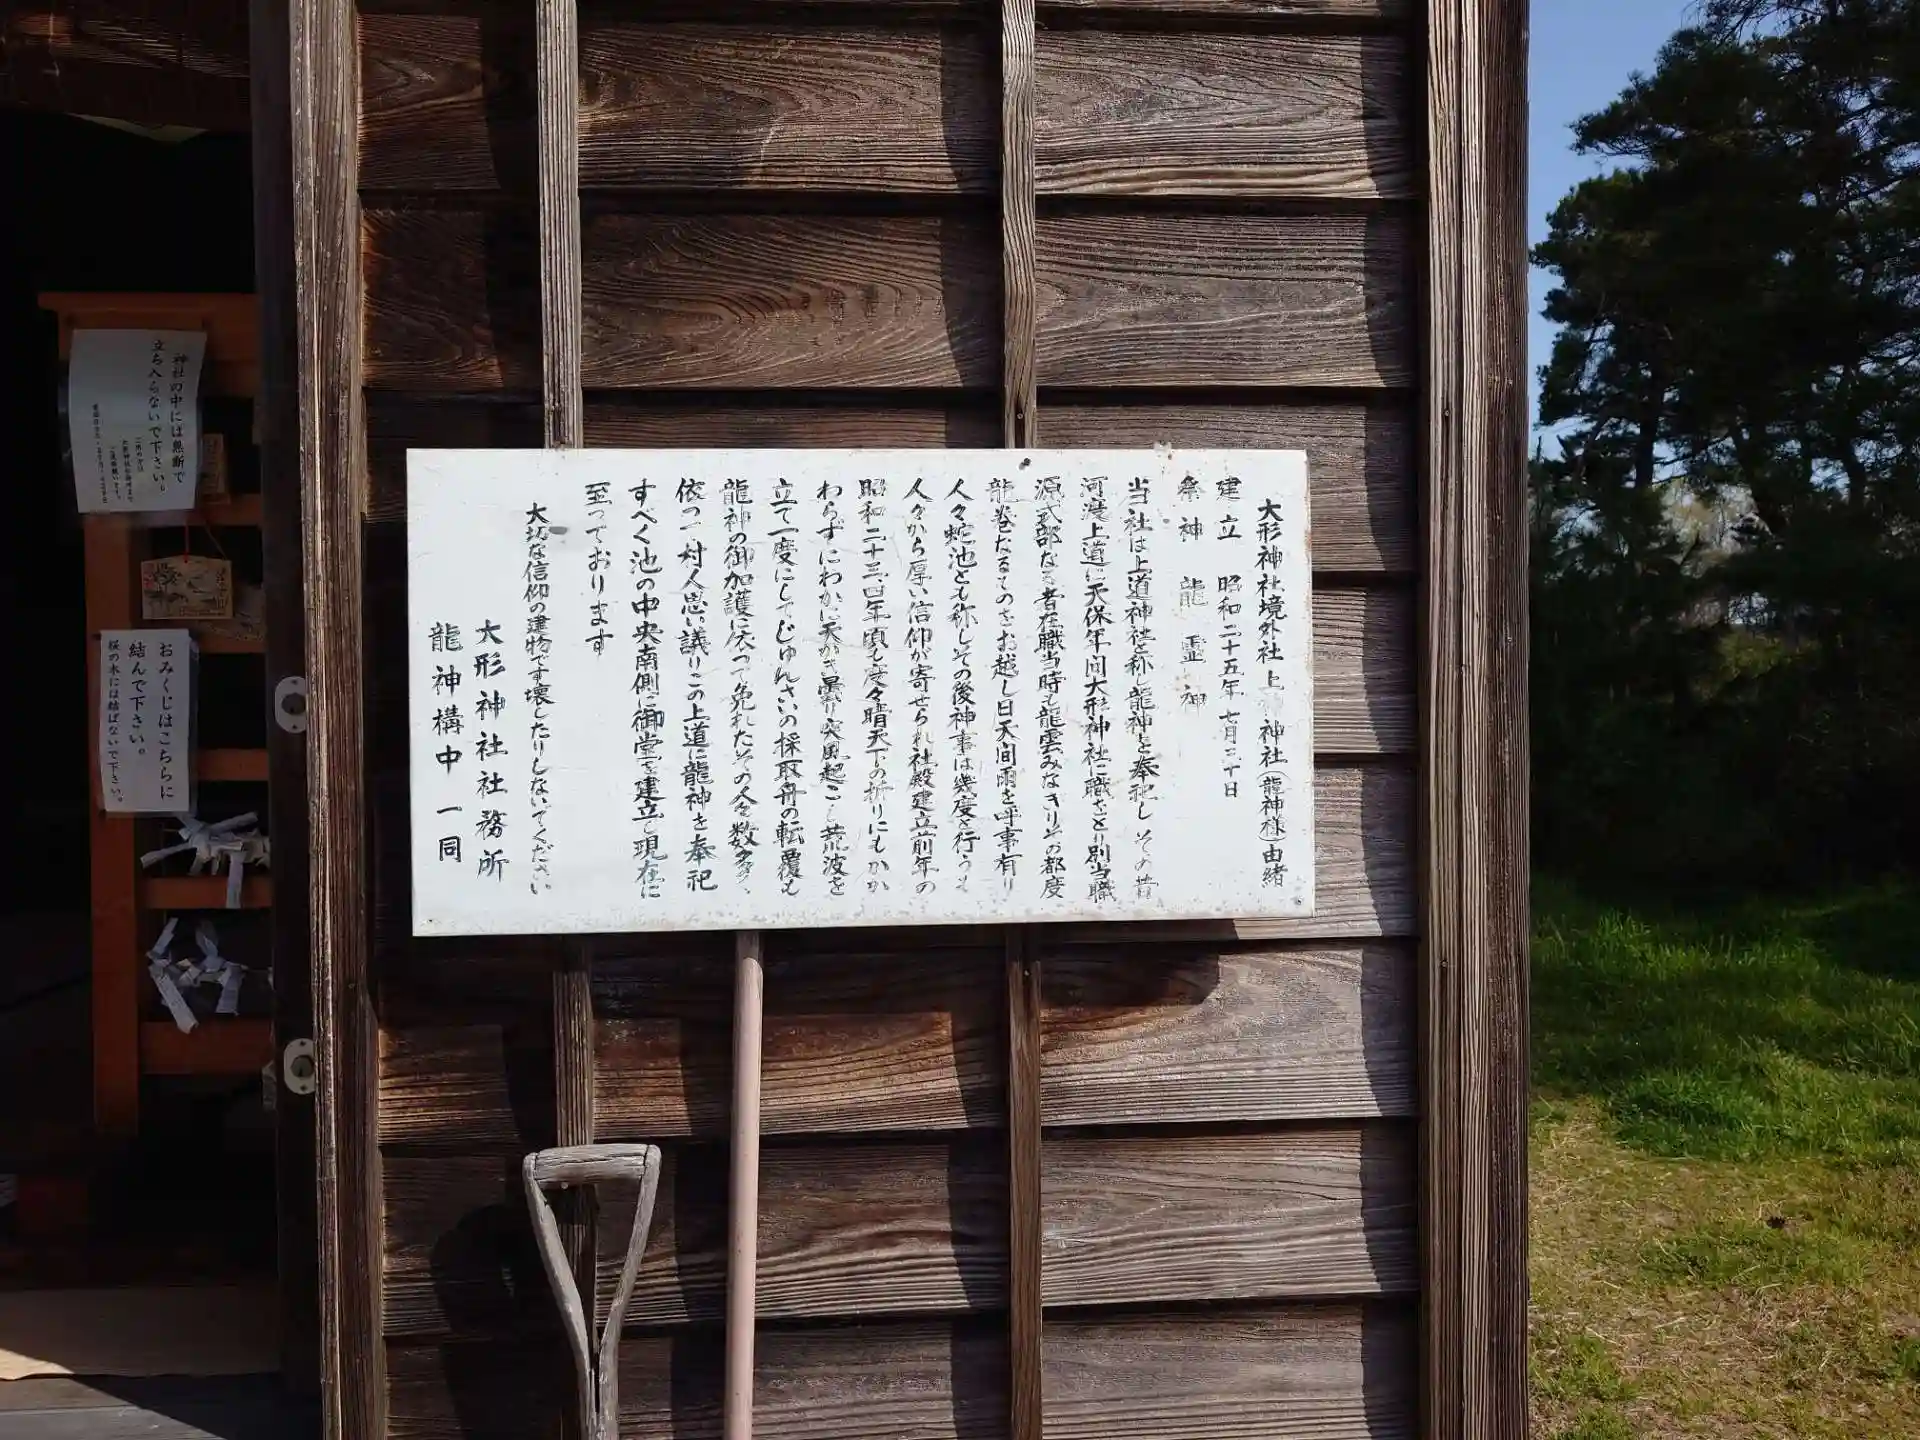 大形神社境外社上 神社(龍神様)由緒
建立 昭和二十五年七月二十日
祭神 龍霊神
当社は上道神社と称し龍神を奉祀しその昔
河渡上道に天保年间大形神社に職をとり別当職
源式部なる者在職当時も龍雲みなぎりその都度
龍巻なるものをお越し日天间雨を呼事有り
人々蛇池とも称しその後神事は幾度も行うも
人々から厚い信仰が寄せられ社殿建立前年の
昭和二十三、四年頃も度々晴天下の折りにもかか
わらずにわかに天かき曇り突風起こし荒波を
立て一度にしてじゅんさいの採取舟の転覆も
龍神の御加護に依つて免れたその人々数多く、
依つて村人思い議りこの上道に龍神を奉祀
すべく池の中央南側に御堂を建立し現在に
至つております
大切な信仰の建物です壊したりしないでください
大形神社社務所
龍神構中一同
神社の中には無断で
立ち入らないで下さい。
おみくじはこちらに
結んで下さい。
桜の木には結ばないで下さい。